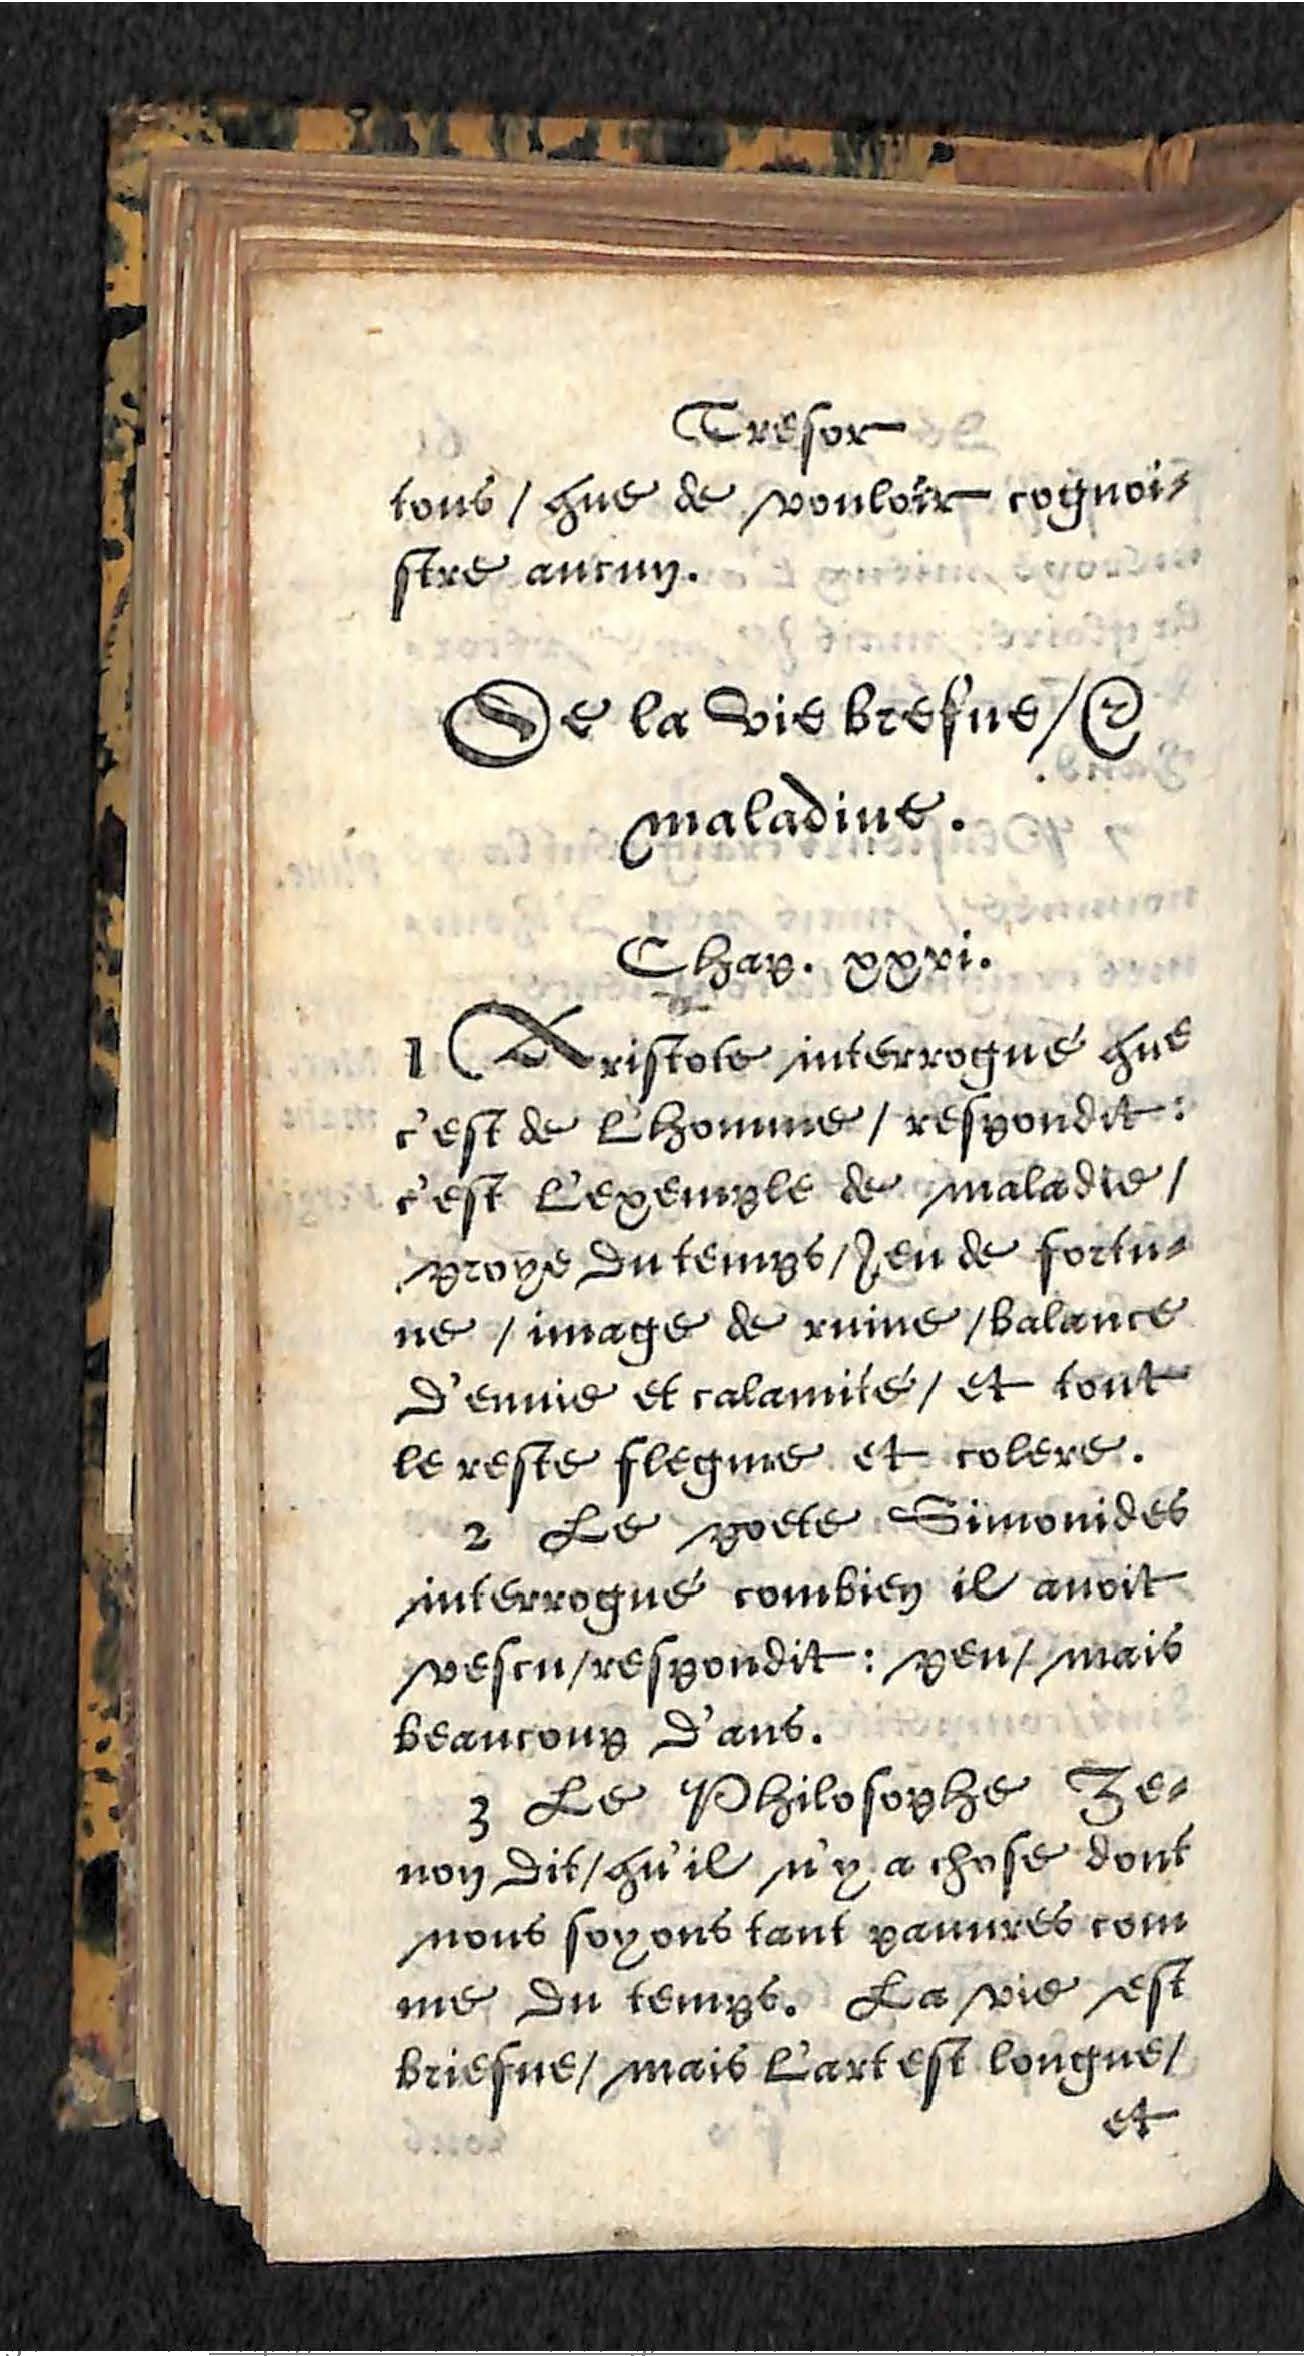 Tresor
tous / que de vouloir cognoi-
stre aucun.
De la vie brefue / &
maladiue.
Chap. xxxi.
1 Aristote interrogué que
c'est de l'homme / respondit:
c'est l'exemple de maladie /
proye du temps / Jeu de fortu-
ne / image de ruine / balance
d'enuie et calamité / et tout
le reste flegme et colere.
2 Le poete Simonides
interrogué combien il auoit
vescu / respondit: peu / mais
beaucoup d'ans.
3 Le Philosophe Ze-
non dit / qu'il n'y a chose dont
nous soyons tant pauures com
me du temps. La vie est
briefue / mais l'art est longue /
et